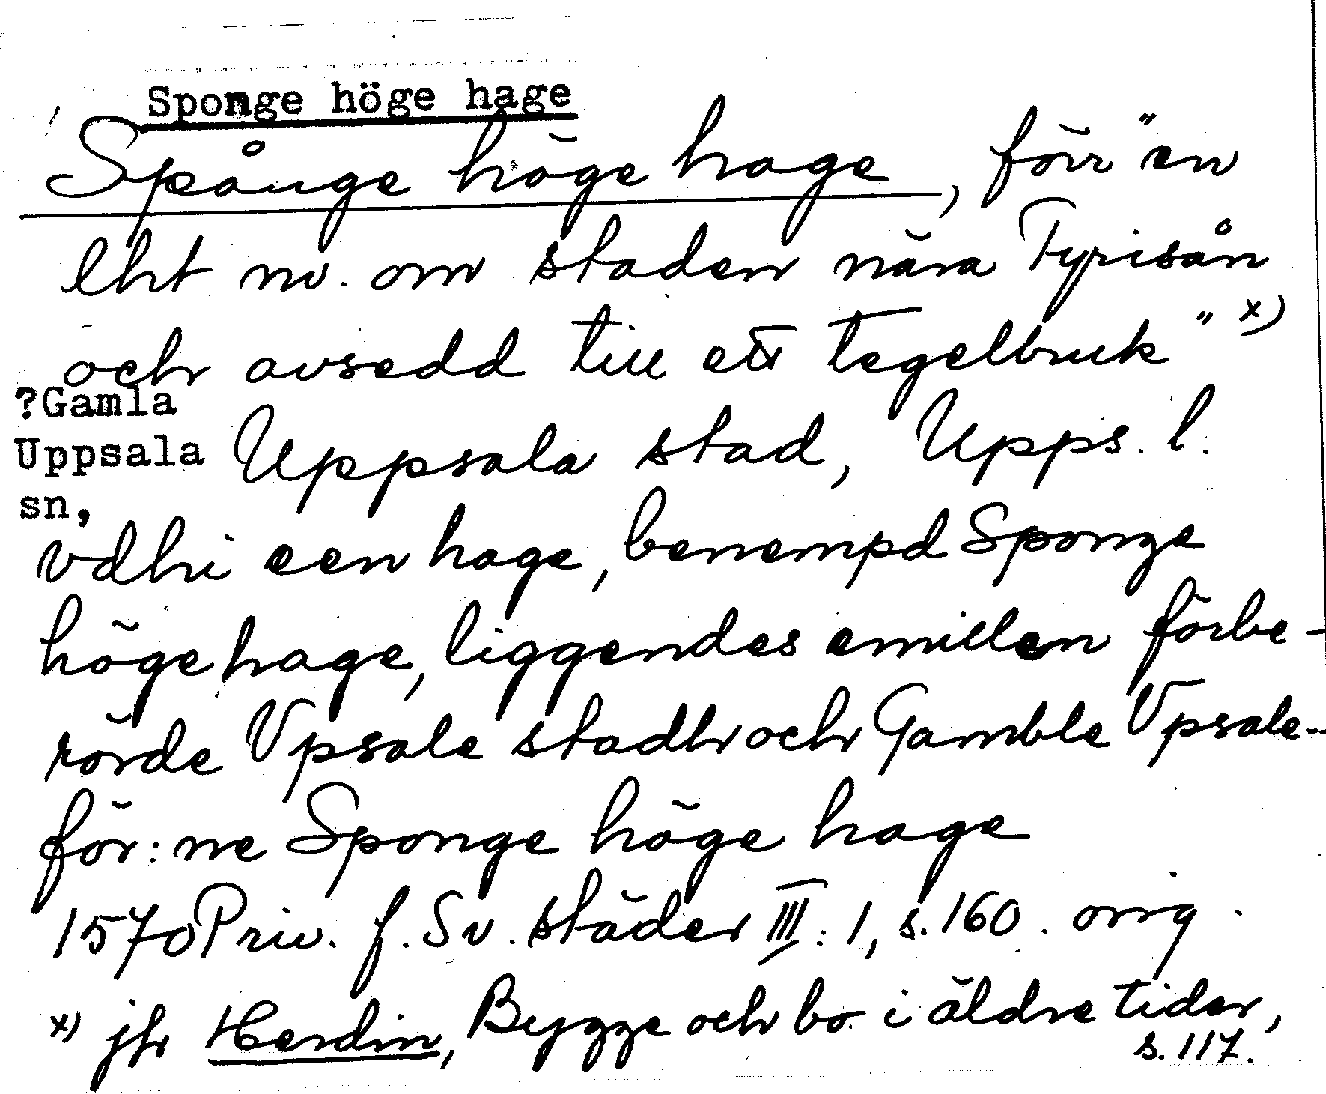 Sponge höge hage
Spånge höge hage, förr "en
lht nv. om staden nära Fyrisån
och avsedd till ett tegelbruk" x)
?Gamla
Uppsala
sn,
Uppsala stad, Upps. l.
vdhi een hage, benempd Sponge
höge hage, liggendes emillen förbe-
rörde Vpsale stadh och Gamble Vpsale--
för:ne Sponge höge hage
1570 Priv. f. Sv. städer III:1, s.160. orig.
x) jfr Herdin, Bygge och bo i äldre tider,
s.117.